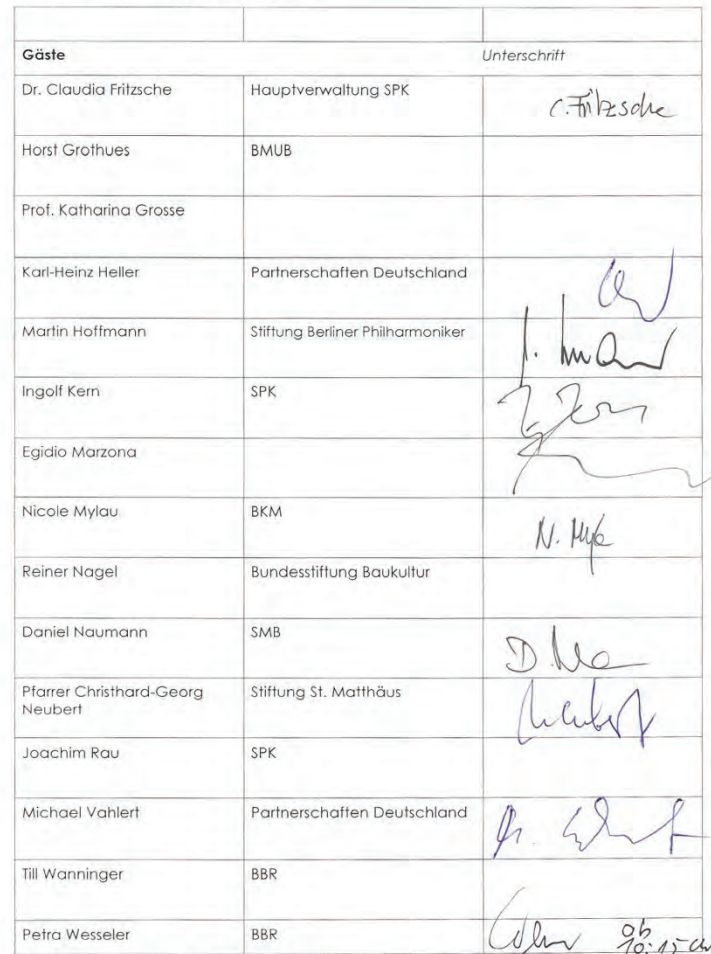 Gäste Unterschrift
Dr. Claudia Fritzsche Hauptverwaltung SPK C. Fritzsche
Horst Grothues BMUB
Prof. Katharina Grosse
Karl-Heinz Heller Partnerschaften Deutschland
Martin Hoffmann Stiftung Berliner Philharmoniker
Ingolf Kern SPK
Egidio Marzona
Nicole Mylau BKM
Reiner Nagel Bundesstiftung Baukultur
Daniel Naumann SMB
Pfarrer Christhard-Georg Stiftung St. Matthäus
Neubert
Joachim Rau SPK
Michael Vahlert Partnerschaften Deutschland
Till Wanninger BBR
Petra Wesseler BBR ab
10:15 Uhr